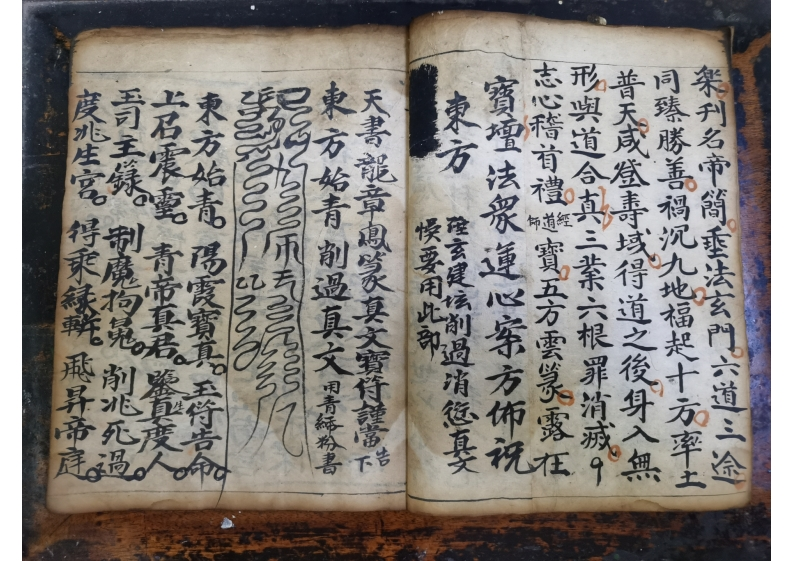 樂刊名帝簡垂法玄門六道三途
同臻勝善禍沉九地福起十方率土
普天咸登壽域得道之後身入無
形與道合真三業六根罪消滅
志心稽首禮經道師寶五方雲篆露在
寶壇法眾運心案方佈祝
東方
建坛削過消愆真文
悞要用此部
天書龍章鳳篆真文寶符謹當告下
東方始青削過真文用青綿粉書
東方始青陽霞寶真玉符告命
上召震靈青帝真君鑒真度人
玉司玉籙制魔拘鬼削死過
度兆生宮得乘綠軿飛昇帝庭